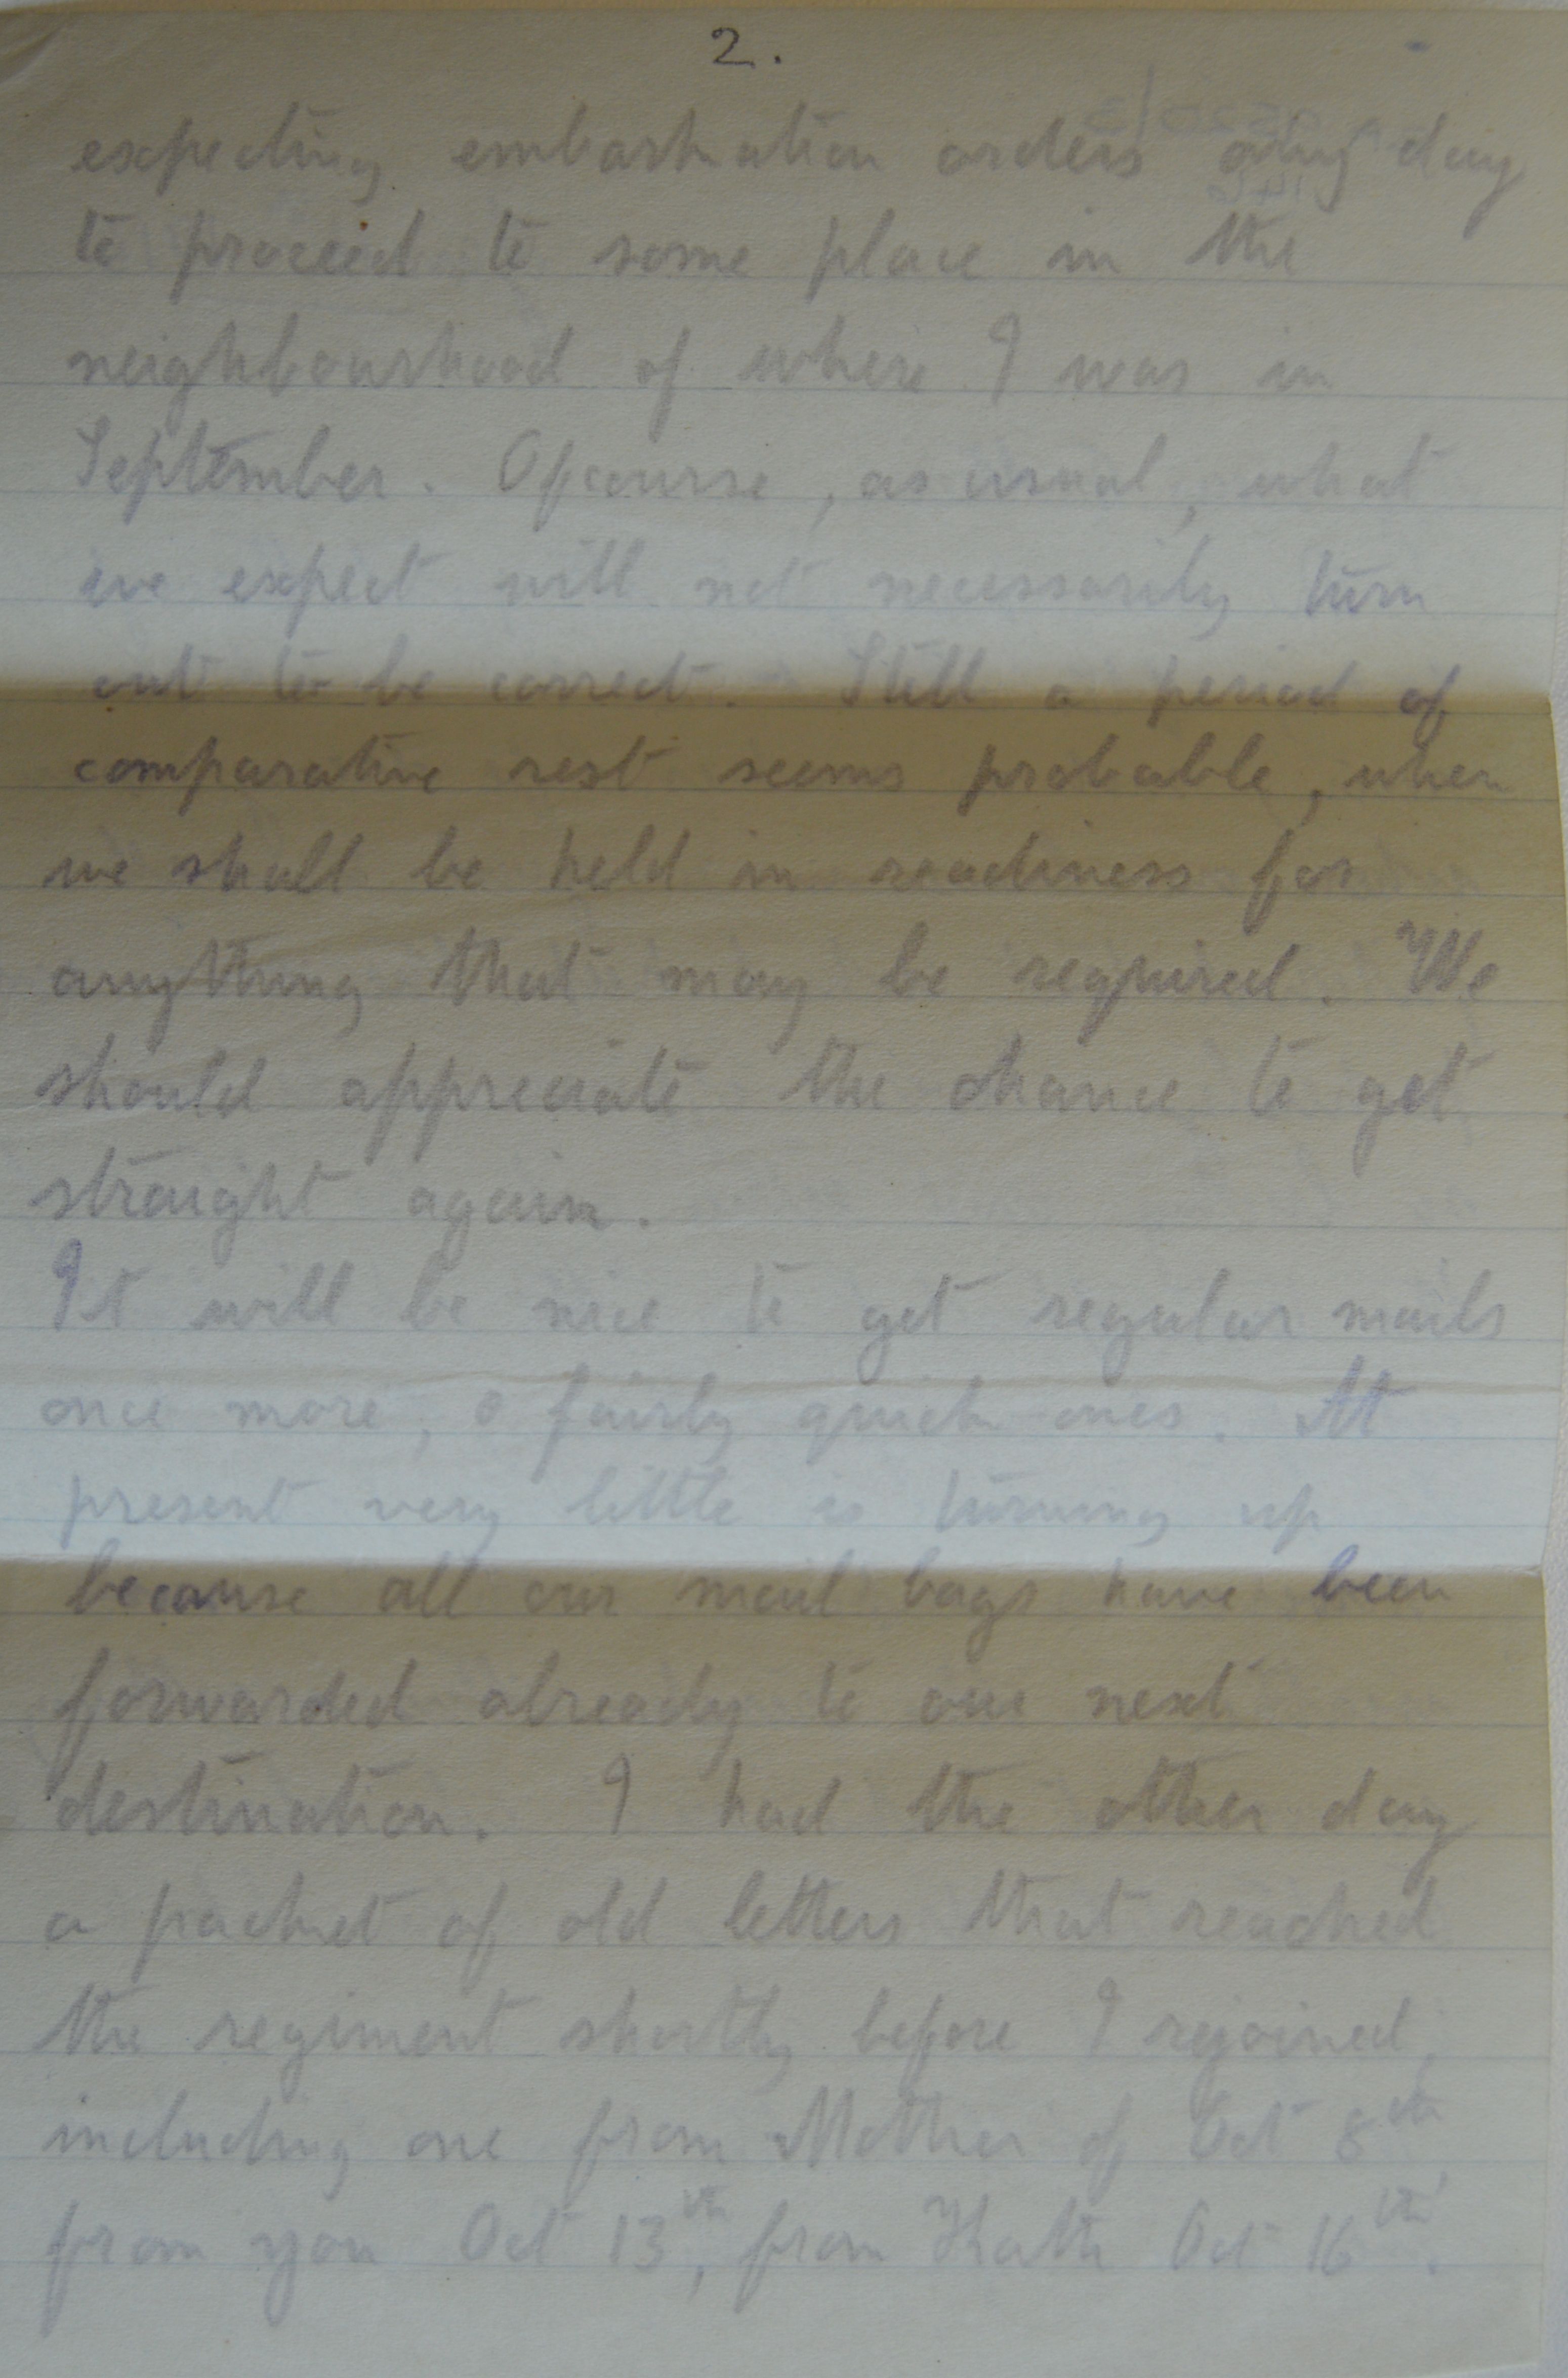 2.
expecting embarkation orders any day
to proceed to some place in the
neighbourhood of where I was in
September. Ofcourse, as usual, what
we expect will not necessarily turn
out to be correct. Still a period of
comparative rest seems probable, when
we shall be held in readiness for
anything that may be required. We
should appreciate the chance to get
straight again.
It will be nice to get regular mails
once more, & fairly quick ones. At
present very little is turning up
because all our mail bags have been
forwarded already to our next
destination. I had the other day
a packet of old letters that reached
the regiment shortly before I rejoined,
including one from Mother of Oct 8th,
from you Oct 13th, from Kath Oct 16th.